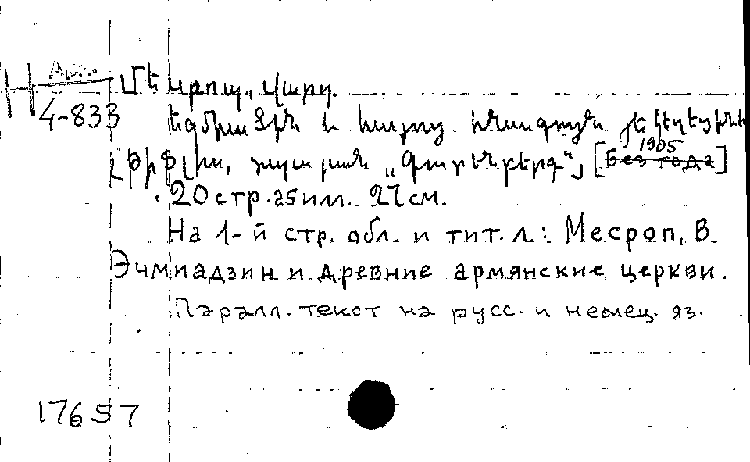 Арм.
4-833
Մեսրոպ, վարդ.
Էջմիածին և հայոց հնագույն եկեղեցիներ
Թիֆլիս, տպարան
[1905 без года]
20 стр. 25 илл. 27 см.
На 1-й стр. обл. и тит. л.: Месроп, В.
Эчмиадзин и древние армянские церкви.
Паралл. текст на русс. и немец. яз.
17657